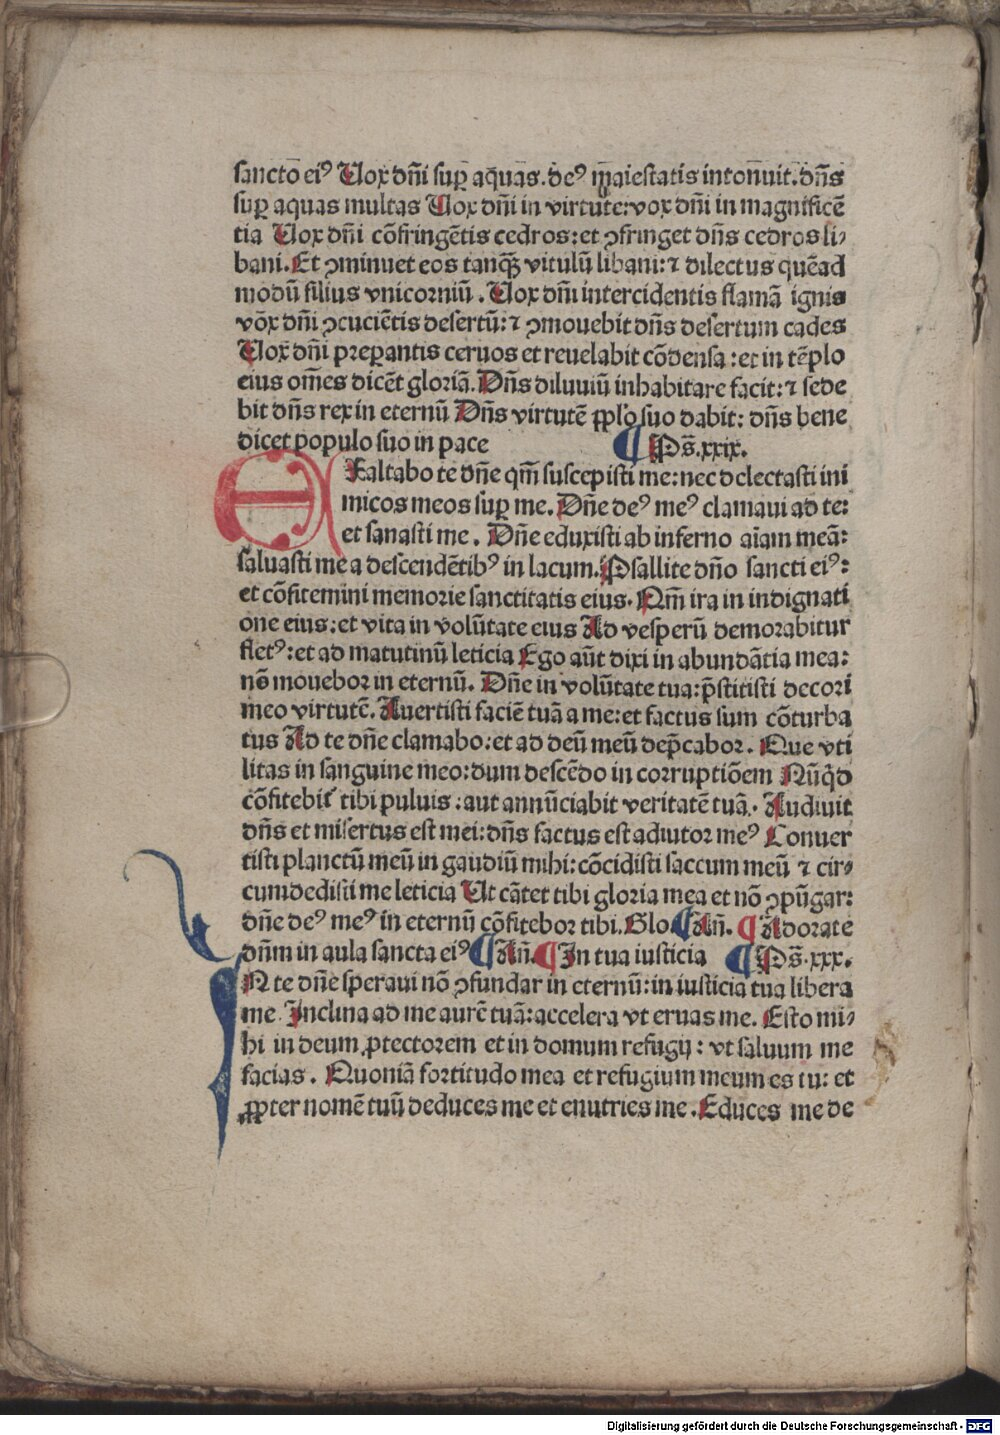 sanctō eiꝰ Vox dn̄i suꝑ aquas. deꝰ maiestatis intonuit. dn̄s
suꝑ aquas multas Vox dn̄i in virtute: vox dn̄i in magnificē
tia Vox dn̄i cōfringētis cedros: et ꝯfringet dn̄s cedros li⸗
bani. Et ꝯminuet eos tanqꝫ vitulū libani: ⁊ dilectus quēad
modū filius vnicorniū. Vox dn̄i intercidentis flamā ignis
vōx dn̄i ꝯcuciētis desertū: ⁊ ꝯmouebit dn̄s desertum cades
Vox dn̄i preꝑantis ceruos et reuelabit cōdensa: et in tēplo
eius om̄es dicēt gloriā. Dn̄s diluuiū inhabitare facit: ⁊ sede
bit dn̄s rex in eternū Dn̄s virtutē pplo suo dabit: dn̄s bene
dicet populo suo in pace ¶ Ps̄. xxix.
EXaltabo te dn̄e qm̄ suscepisti me: nec delectasti ini
micos meos suꝑ me. Dn̄e deꝰ meꝰ clamaui ad te:
et sanasti me. Dn̄e eduxisti ab inferno aīam meā:
saluasti me a descendētibꝰ in lacum. Psallite dn̄o sancti eiꝰ:
et cōfitemini memorie sanctitatis eius. Qm̄ ira in indignati
one eius: et vita in volūtate eius Ad vesperū demorabitur
fletꝰ: et ad matutinū leticia Ego aūt dixi in abundātia mea:
nō mouebor in eternū. Dn̄e in volūtate tua: p̄stitisti decori
meo virtutē. Auertisti faciē tuā a me: et factus sum cōturba
tus Ad te dn̄e clamabo: et ad deū meū dep̄cabor. Que vti
litas in sanguine meo: dum descēdo in corruptiōem Nūqd
cōfitebit᷑ tibi puluis: aut annūciabit veritatē tuā. Audiuit
dn̄s et misertus est mei: dn̄s factus est adiutor meꝰ Conuer
tisti planctū meū in gaudiū mihi: cōcidisti saccum meū ⁊ cir⸗
cumdedisti me leticia Ut cātet tibi gloria mea et nō ꝯpūgar:
dn̄e deꝰ meꝰ in eternū cōfitebor tibi. Glo. ¶ Añ. ¶ Adorate
dn̄m in aula sancta eiꝰ ¶ Añ. ¶ In tua iusticia ¶ Ps̄. xxx.
IN te dn̄e speraui nō ꝯfundar in eternū: in iusticia tua libera
me Inclina ad me aurē tuā: accelera vt eruas me. Esto mi⸗
hi in deum ꝓtectorem et in domum refugij: vt saluum me
facias. Quoniā fortitudo mea et refugium meum es tu: et
ꝓpter nomē tuū deduces me et enutries me. Educes me de
Digitalisierung gefördert durch die Deutsche Forschungsgemeinschaft - DFG